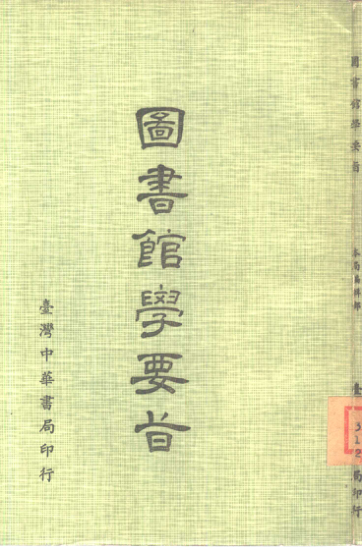 圖書館學要旨
臺灣中華書局印行
圖書館學要旨
本局編輯部
臺
局印行
312